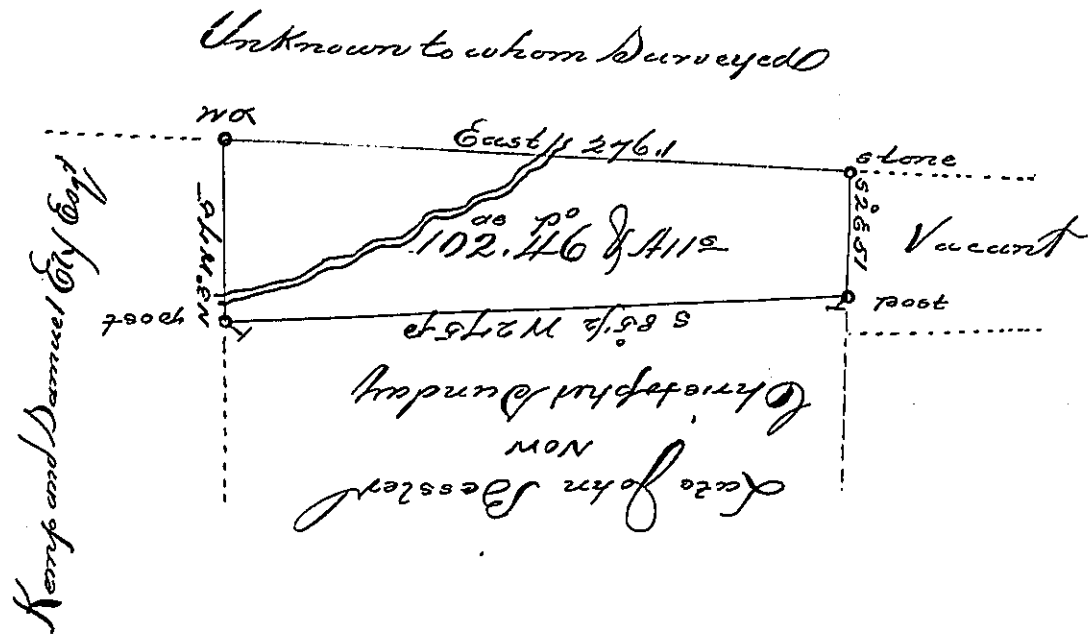 Unknown to whom Surveyed
WO
East 276.1
stone
S 2° E 51
Vacant
102 as. 46 ps. & All's
N 3° W 75
post
post
S 85°½ W 275 p
Christopher Sunday
now
Late John Bessler
Kemp and Samuel Ely Esqr